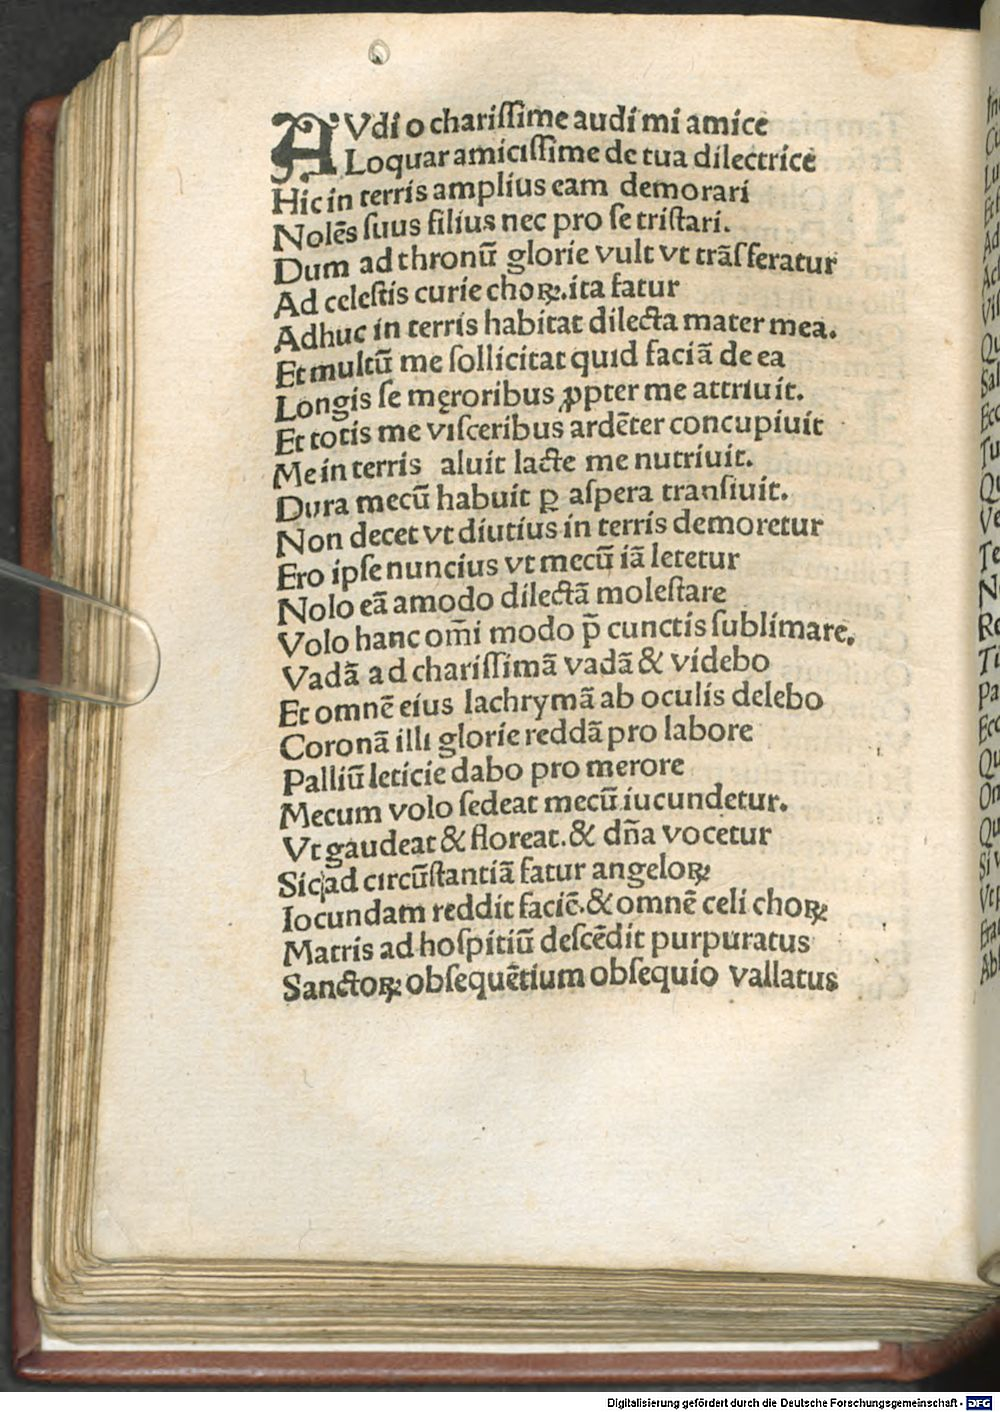 AVdi o chariſſime audi mi amice
Loquar amiciſſime de tua dilectrice
Hic in terris amplius eam demorari
Nolēs ſuus filius nec pro ſe triſtari.
Dum ad thronū glorie vult vt trāſferatur
Ad celeſtis curie choꝝ.ita fatur
Adhuc in terris habitat dilecta mater mea.
Et multū me ſollicitat quid faciā de ea
Longis ſe męroribus ꝓpter me attriuit.
Et totis me viſceribus ardēter concupiuit
Me in terris aluit lacte me nutriuit.
Dura mecū habuit ꝑ aſpera tranſiuit.
Non decet vt diutius in terris demoretur
Ero ipſe nuncius vt mecū iā letetur
Nolo eā amodo dilectā moleſtare
Volo hanc om̄i modo p̄ cunctis ſublimare.
Vadā ad chariſſimā vadā & videbo
Et omnē eius lachrymā ab oculis delebo
Coronā illi glorie reddā pro labore
Palliū leticie dabo pro merore
Mecum volo ſedeat mecū iucundetur.
Vt gaudeat & floreat.& dn̄a vocetur
Sic ad circūſtantiā fatur angeloꝝ
Iocundam reddit faciē.& omnē celi choꝝ
Matris ad hoſpitiū deſcēdit purpuratus
Sanctoꝝ obſequētium obſequio vallatus
Digitalisierung gefördert durch die Deutsche Forschungsgemeinschaft - DFG